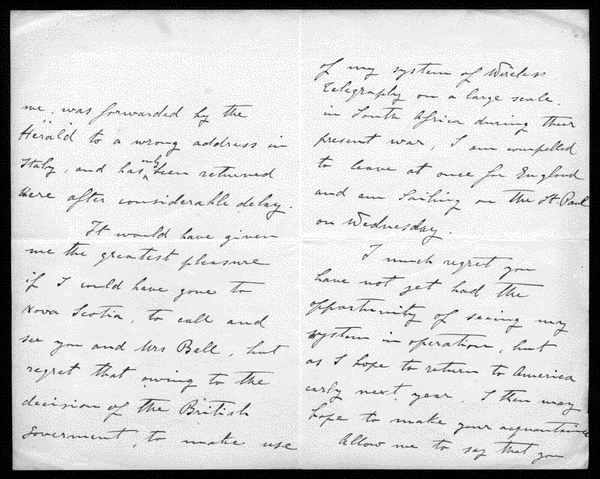 me, was forwarded by the
Herald to a wrong address in
Italy, and has only been returned
here after considerable delay.
It would have given
me the greatest pleasure
if I could have gone to
Nova Scotia, to call and
see you and Mrs Bell, but
regret that owing to the
decision of the British
Goverment, to make use
of my system of Wireless
Telegraphy on a large scale
in South Africa during their
present war, I am compelled
to leave at once for England
and am Sailing on the St Paul
on Wednesday.
I much regret you
have not yet had the
opportunity of seeing my
system in operation, but
as I hope to return to America
early next year, I then may
hope to make your acquantaince
Allow me to say that you